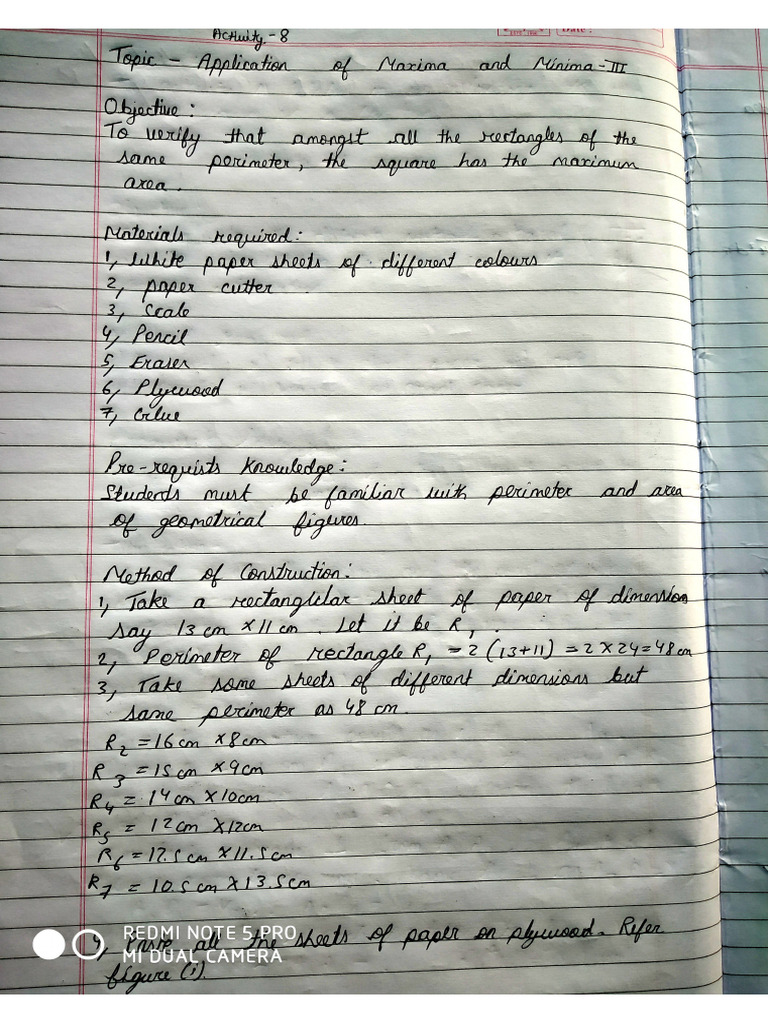 Activity - 8
Date :
Topic - Application of Maxima and Minima - III
Objective :
To verify that amongst all the rectangles of the
same perimeter, the square has the maximum
area.
Materials required :
1, White paper sheets of different colours
2, paper cutter
3, Scale
4, Pencil
5, Eraser
6, Plywood
7, Glue
Pre-requists Knowledge :
Students must be familiar with perimeter and area
of geometrical figures.
Method of Construction :
1, Take a rectanglular sheet of paper of dimension
say 13 cm × 11 cm. Let it be R1.
2, Perimeter of rectangle R1 = 2 (13+11) = 2 × 24 = 48 cm
3, Take some sheets of different dimensions but
same perimeter as 48 cm.
R2 = 16 cm × 8 cm
R3 = 15 cm × 9 cm
R4 = 14 cm × 10 cm
R5 = 12 cm × 12 cm
R6 = 12.5 cm × 11.5 cm
R7 = 10.5 cm × 13.5 cm
4, Paste all the sheets of paper on plywood. Refer
figure (i).
REDMI NOTE 5 PRO
MI DUAL CAMERA